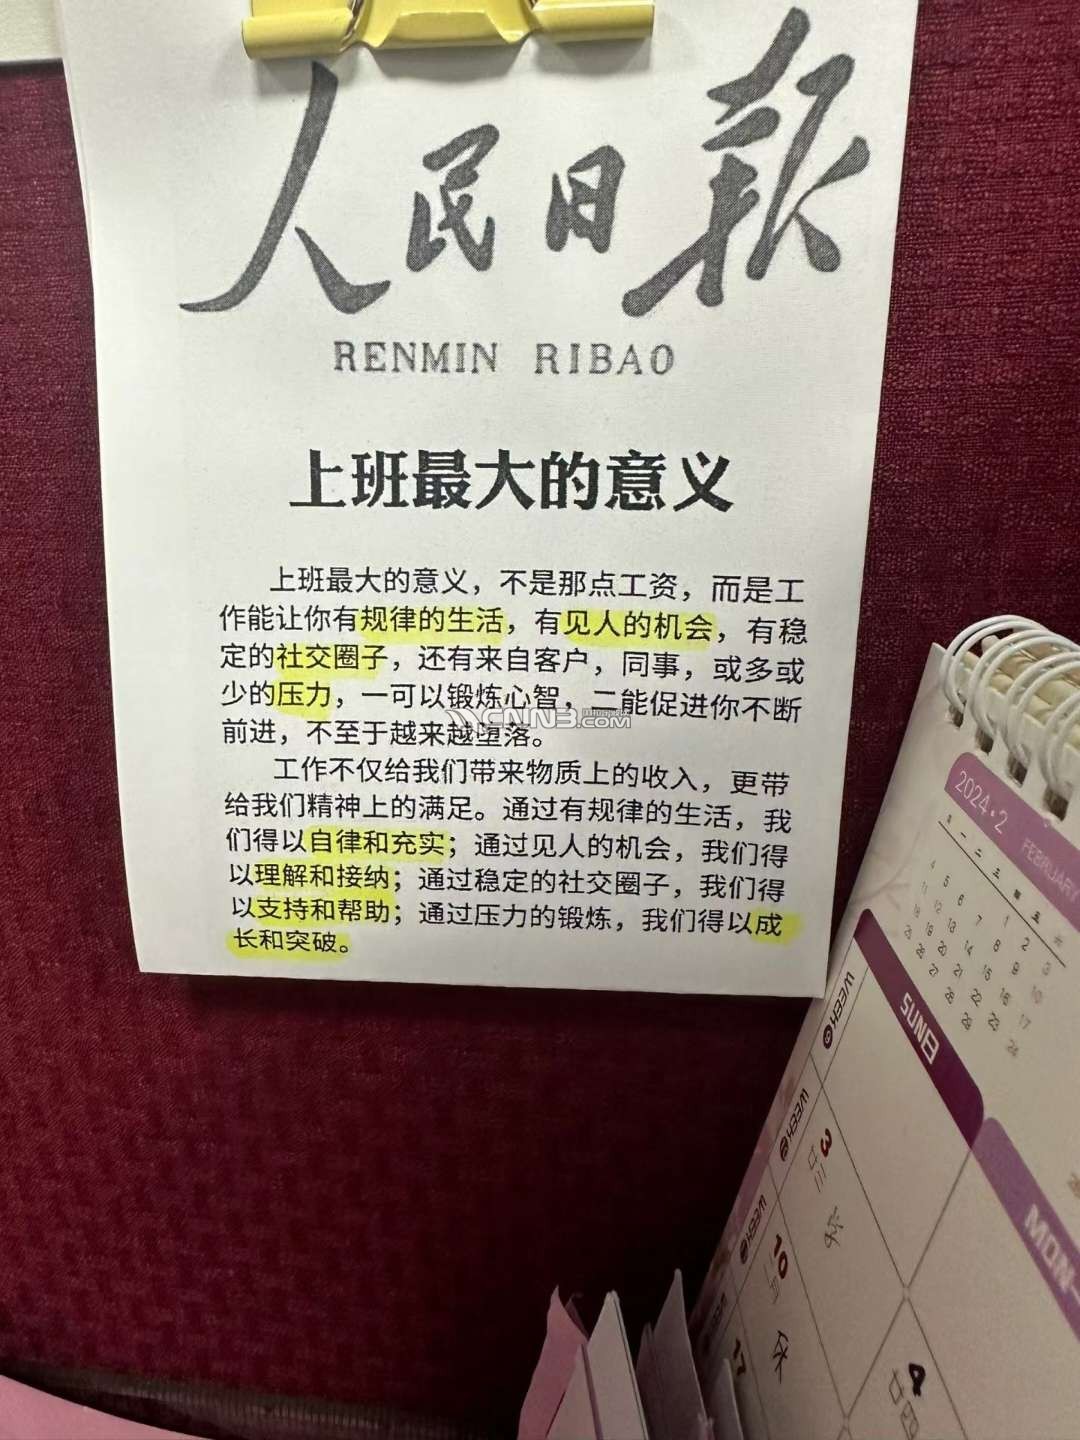 人民日报
RENMIN RIBAO
上班最大的意义
上班最大的意义，不是那点工资，而是工
作能让你有规律的生活，有见人的机会，有稳
定的社交圈子，还有来自客户，同事，或多或
少的压力，一可以锻炼心智，二能促进你不断
前进，不至于越来越堕落。
工作不仅给我们带来物质上的收入，更带
给我们精神上的满足。通过有规律的生活，我
们得以自律和充实；通过见人的机会，我们得
以理解和接纳；通过稳定的社交圈子，我们得
以支持和帮助；通过压力的锻炼，我们得以成
长和突破。
CNNB.COM
2024·2
FEBRUARY
日 一 二 三 四 五 六
1 2 3
4 5 6 7 8 9 10
11 12 13 14 15 16 17
18 19 20 21 22 23 24
25 26 27 28 29
SUN日
MON一
WEEK
3
廿三
WEEK
10
WEEK
17
4
廿四